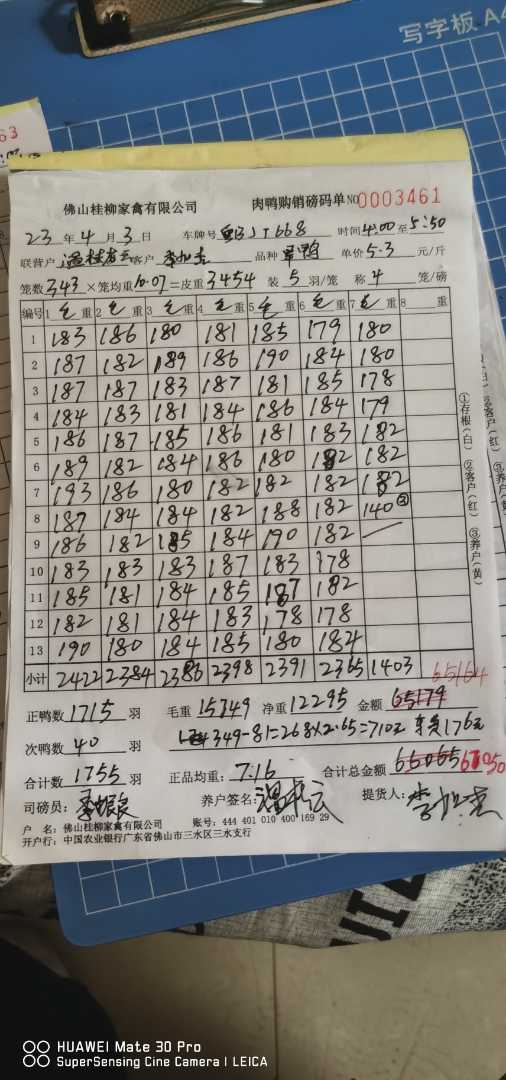 写字板 A4
63
佛山桂柳家禽有限公司 肉鸭购销磅码单 NO 0003461
23 年 4 月 3 日 车牌号 668 时间 4:00 至 5:50
联营户 客户 品种 草鸭 单价 5.3 元/斤
笼数 343 × 笼均重 10.07 = 皮重 3454 装 5 羽/笼 称 4 笼/磅
编号 1 毛 重 2 毛 重 3 毛 重 4 毛 重 5 毛 重 6 毛 重 7 毛 重 8 重
1 183 186 180 181 185 179 180
2 187 182 189 186 190 184 180
3 187 187 183 187 181 185 178
4 184 183 181 184 186 184 179
5 186 187 185 186 181 183 182
6 189 182 184 186 180 182 182
7 193 186 180 182 182 182 182
8 187 184 184 182 188 182 140 ③
9 186 182 185 184 190 182
10 183 183 183 187 183 178
11 185 181 184 185 187 182
12 182 181 184 183 178 178
13 190 180 184 185 180 184
小计 2422 2384 2386 2398 2391 2365 1403
①存根(白) ②客户(红) ③养户(黄)
65164
正鸭数 1715 羽 毛重 15749 净重 12295 金额 65179
349-81=268×2.65=710元 176元
次鸭数 40 羽
合计数 1755 羽 正品均重: 7.16 合计总金额 66065 67050
司磅员: 养户签名: 提货人:
户 名: 佛山桂柳家禽有限公司 账号: 444 401 010 400 169 29
开户行: 中国农业银行广东省佛山市三水区三水支行
HUAWEI Mate 30 Pro
SuperSensing Cine Camera | LEICA